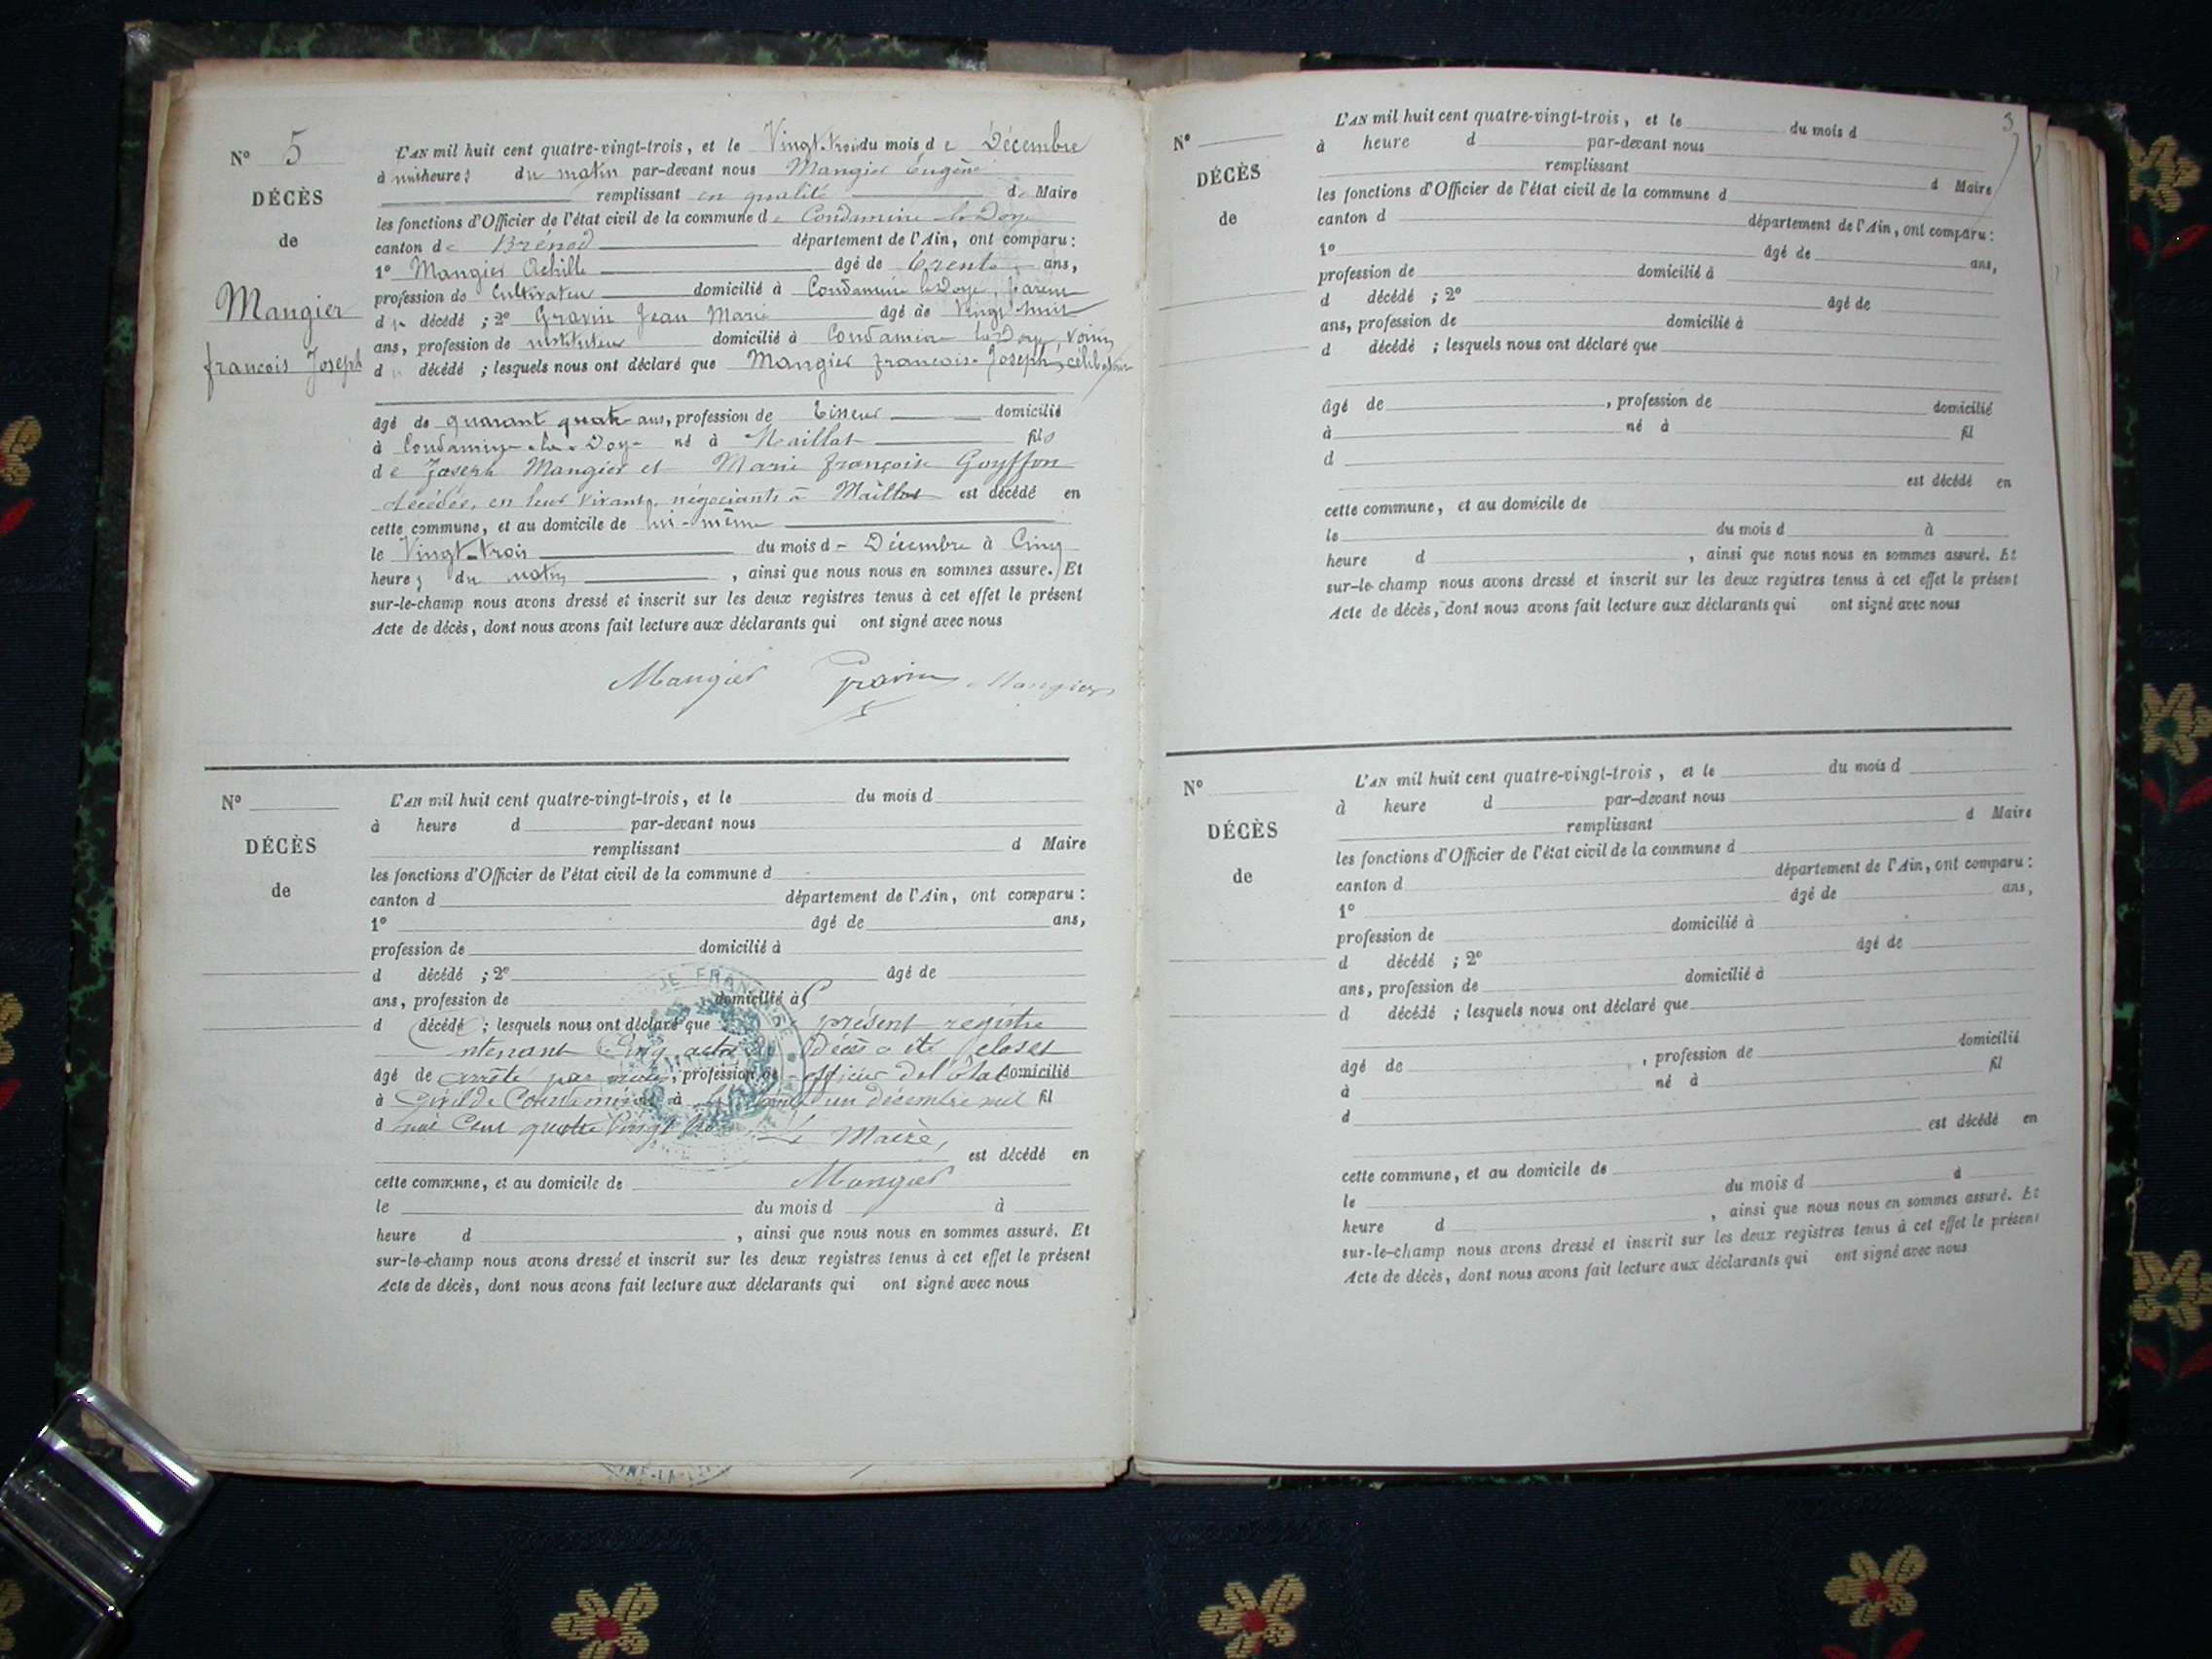 N° 5
DÉCÈS
de
Mangier
francois Joseph
L'AN mil huit cent quatre-vingt-trois, et le Vingt-trois du mois de Décembre
à heures du matin par-devant nous Mangier Eugène
remplissant en qualité de Maire
les fonctions d'Officier de l'état civil de la commune de Condamine la Doye
canton de Brénod département de l'Ain, ont comparu :
1° Mangier Achille âgé de trente ans,
profession de Cultivateur domicilié à Condamine la Doye, parent
du décédé ; 2° Gravin Jean Marie âgé de Vingt huit
ans, profession de instituteur domicilié à Condamine la Doye, voisin
du décédé ; lesquels nous ont déclaré que Mangier francois-Joseph, célibataire
âgé de quarant quatr ans, profession de Tisseur domicilié
à Condamine-la-Doye né à Maillat fils
de Joseph Mangier et Marie françoise Goyffon
décédés, en leur vivant, négociants à Maillat est décédé en
cette commune, et au domicile de lui-même
le Vingt-trois du mois de Décembre à Cinq
heures du matin, ainsi que nous nous en sommes assuré. Et
sur-le-champ nous avons dressé et inscrit sur les deux registres tenus à cet effet le présent
Acte de décès, dont nous avons fait lecture aux déclarants qui ont signé avec nous
Mangier Gravin Mangier
N°
DÉCÈS
de
L'AN mil huit cent quatre-vingt-trois, et le du mois d
à heure d par-devant nous
remplissant d Maire
les fonctions d'Officier de l'état civil de la commune d
canton d département de l'Ain, ont comparu :
1° âgé de ans,
profession de domicilié à
d décédé ; 2° âgé de
ans, profession de domicilié à
d décédé ; lesquels nous ont déclaré que présent registre
contenant Cinq actes de Décès a été closet
âgé de arrêté par nous, profession de officier de l'état domicilié
à Civil de Condamine à un décembre mil fil
d huit Cent quatre Vingt trois Le Maire,
est décédé en
cette commune, et au domicile de Mangier
le du mois d à
heure d , ainsi que nous nous en sommes assuré. Et
sur-le-champ nous avons dressé et inscrit sur les deux registres tenus à cet effet le présent
Acte de décès, dont nous avons fait lecture aux déclarants qui ont signé avec nous
3
N°
DÉCÈS
de
L'AN mil huit cent quatre-vingt-trois, et le du mois d
à heure d par-devant nous
remplissant d Maire
les fonctions d'Officier de l'état civil de la commune d
canton d département de l'Ain, ont comparu :
1° âgé de ans,
profession de domicilié à
d décédé ; 2° âgé de
ans, profession de domicilié à
d décédé ; lesquels nous ont déclaré que
âgé de , profession de domicilié
à né à fil
d
est décédé en
cette commune, et au domicile de
le du mois d à
heure d , ainsi que nous nous en sommes assuré. Et
sur-le-champ nous avons dressé et inscrit sur les deux registres tenus à cet effet le présent
Acte de décès, dont nous avons fait lecture aux déclarants qui ont signé avec nous
N°
DÉCÈS
de
L'AN mil huit cent quatre-vingt-trois, et le du mois d
à heure d par-devant nous
remplissant d Maire
les fonctions d'Officier de l'état civil de la commune d
canton d département de l'Ain, ont comparu :
1° âgé de ans,
profession de domicilié à
d décédé ; 2° âgé de
ans, profession de domicilié à
d décédé ; lesquels nous ont déclaré que
âgé de , profession de domicilié
à né à fil
d
est décédé en
cette commune, et au domicile de
le du mois d à
heure d , ainsi que nous nous en sommes assuré. Et
sur-le-champ nous avons dressé et inscrit sur les deux registres tenus à cet effet le présent
Acte de décès, dont nous avons fait lecture aux déclarants qui ont signé avec nous